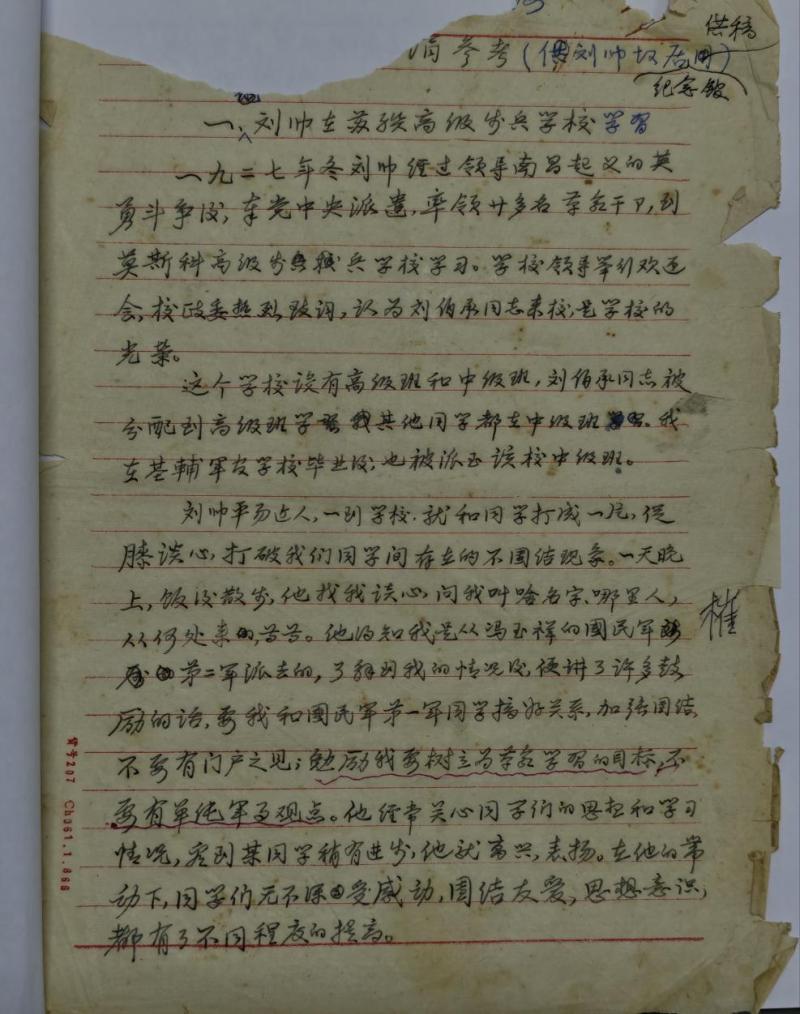 供稿
消参考（供刘帅故居用）
纪念馆
一、刘帅在苏联高级步兵学校学习
一九二七年冬刘帅经过领导南昌起义的英
勇斗争后，奉党中央派遣，率领廿多名革命干卩，到
莫斯科高级步兵学校学习。学校领导举行欢迎
会，校政委热烈致词，认为刘伯承同志来校是学校的
光荣。
这个学校设有高级班和中级班，刘伯承同志被
分配到高级班学习 我其他同学都在中级班学习。我
在基輔军官学校毕业后；也被派至该校中级班。
刘帅平易近人，一到学校，就和同学打成一片，促
膝谈心，打破我们同学间存在的不团结现象。一天晚
上，饭后散步，他找我谈心，问我叫啥名字、哪里人，
从何处来的，苦苦。他得知我是从冯玉祥的國民军
第二军派去的，了解到我的情况后，便讲了许多鼓
励的话，要我和國民军第一军同学搞好关系，加强团结
不要有门户之见；勉励我要树立为革命学习的目标，不
要有单纯军事观点。他经常关心同学们的思想和学习
情况，看到某同学稍有进步，他就高兴，表扬。在他的带
动下，同学们无不深受感动，团结友爱，思想意识，
都有了不同程度的提高。
權
货号207 Ch061.1.868